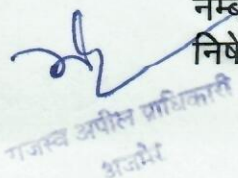 नम्ब
निषे
राजस्व अपील प्राधिकारी
अजमेर